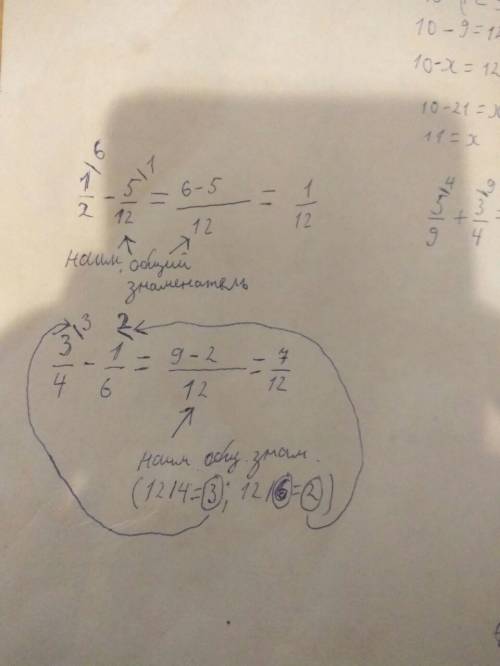 10-9=12
10-x=12
10-21=x
11=x
1/2 \6 - 5/12 \1 = 6-5/12 = 1/12
5/9 \4 + 3/4 \9 =
наим. общий
знаменатель
3/4 \3 - 1/6 \2 = 9-2/12 = 7/12
наим. общ. знам.
(12/4=3; 12/6=2)